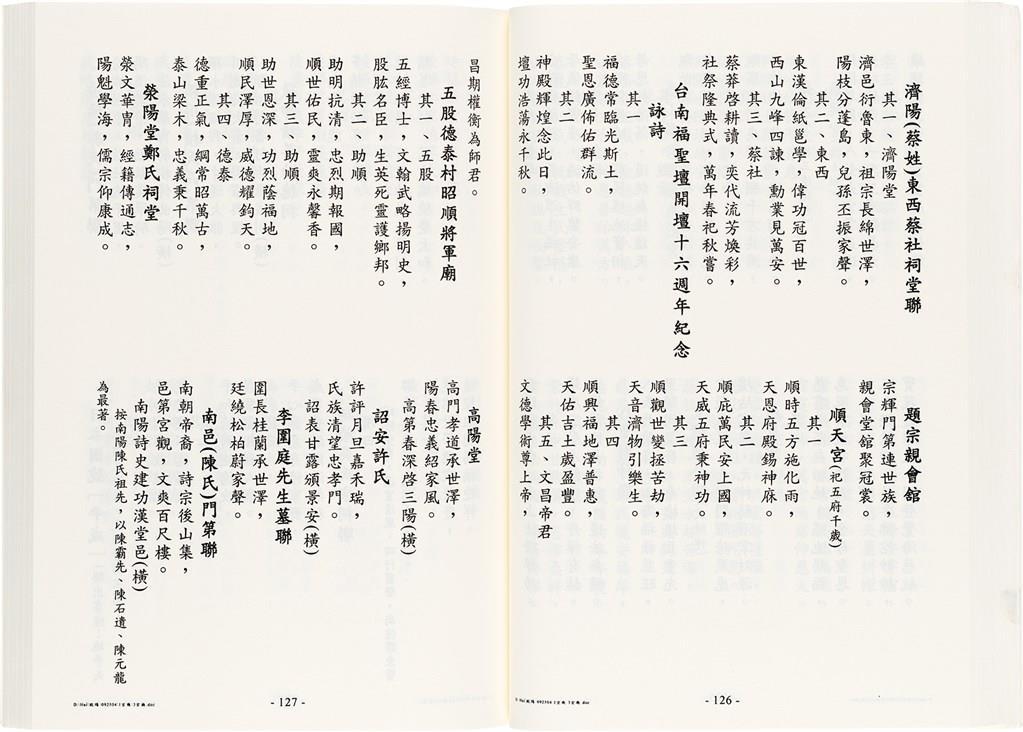 濟陽(蔡姓)東西蔡社祠堂聯
其一、濟陽堂
濟邑衍魯東，祖宗長綿世澤，
陽枝分蓬島，兒孫丕振家聲。
其二、東西
東漢倫紙邕學，偉功冠百世，
西山九峰四諫，勳業見萬安。
其三、蔡社
蔡莽啓耕讀，奕代流芳煥彩，
社祭隆典式，萬年春祀秋嘗。
台南福聖壇開壇十六週年紀念
詠詩
其一
福德常臨光斯土，
聖恩廣佈佑群流。
其二
神殿輝煌念此日，
壇功浩蕩永千秋。
題宗親會館
宗輝門第連世族，
親會堂館聚冠裳。
順天宮(祀五府千歲)
其一
順時五方施化雨，
天恩府殿錫神庥。
其二
順庇萬民安上國，
天威五府秉神功。
其三
順觀世變拯苦劫，
天音濟物引樂生。
其四
順興福地澤普惠，
天佑吉土歲盈豐。
其五、文昌帝君
文德學術尊上帝，
- 126 -
昌期權衡為師君。
五股德泰村昭順將軍廟
其一、五股
五經博士，文翰武略揚明史，
股肱名臣，生英死靈護鄉邦。
其二、助順
助明抗清，忠烈期報國，
順世佑民，靈爽永馨香。
其三、助順
助世恩深，功烈蔭福地，
順民澤厚，威德耀鈞天。
其四、德泰
德重正氣，綱常昭萬古，
泰山梁木，忠義秉千秋。
滎陽堂鄭氏祠堂
榮文華冑，經籍傳通志，
陽魁學海，儒宗仰康成。
高陽堂
高門孝道承世澤，
陽春忠義紹家風。
高第春深啓三陽(橫)
詔安許氏
許評月旦嘉禾瑞，
氏族清望忠孝門。
詔表甘露頒景安(橫)
李圍庭先生墓聯
圍長桂蘭承世澤，
廷繞松柏蔚家聲。
南邑(陳氏)門第聯
南朝帝裔，詩宗後山集，
邑第宮觀，文爽百尺樓。
南陽詩史建功漢堂邑(橫)
按南陽陳氏祖先，以陳霸先、陳石遺、陳元龍
為最著。
- 127 -